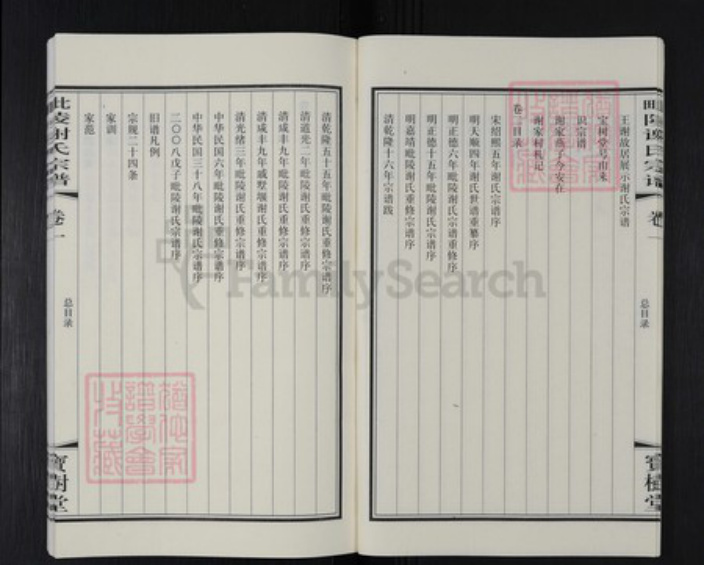 毗陵谢氏宗谱
卷一
总目录
寳樹堂
王谢故居展示谢氏宗谱
宝树堂号由来
识宗谱
谢家燕子今安在
谢家村札记
卷二目录
宋绍熙五年谢氏宗谱序
明天顺四年谢氏世谱重纂序
明正德六年毗陵谢氏宗谱重修序
明正德十五年毗陵谢氏宗谱序
明嘉靖毗陵谢氏重修宗谱序
清乾隆十六年宗谱跋
清乾隆五十五年毗陵谢氏重修宗谱序
清道光二年毗陵谢氏重修宗谱序
清咸丰九年毗陵谢氏重修宗谱序
清咸丰九年戚墅堰谢氏重修宗谱序
清光绪三年毗陵谢氏重修宗谱序
中华民国六年毗陵谢氏重修宗谱序
中华民国三十八年毗陵谢氏宗谱序
二〇〇八戊子毗陵谢氏宗谱序
旧谱凡例
宗规二十四条
家训
家范
毗陵谢氏宗谱
卷一
总目录
寳樹堂
FamilySearch